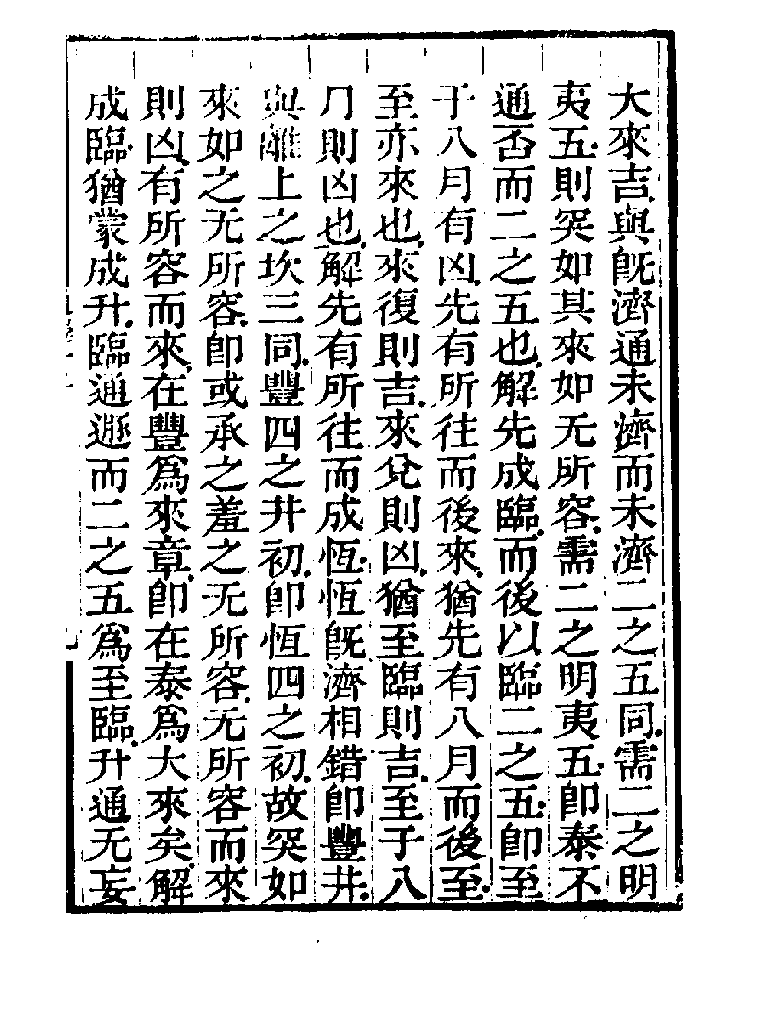 大來吉與旣濟通未濟而未濟二之五同需二之明
夷五則突如其來如无所容需二之明夷五卽泰不
通否而二之五也解先成臨而後以臨二之五卽至
于八月有凶先有所往而後來猶先有八月而後至
至亦來也來復則吉來兌則凶猶至臨則吉至于八
月則凶也解先有所往而成恆恆旣濟相錯卽豐井
與離上之坎三同豐四之井初卽恆四之初故突如
來如之无所容卽或承之羞之无所容无所容而來
則凶有所容而來在豐爲來章卽在泰爲大來矣解
成臨猶蒙成升臨通遯而二之五爲至臨升通无妄